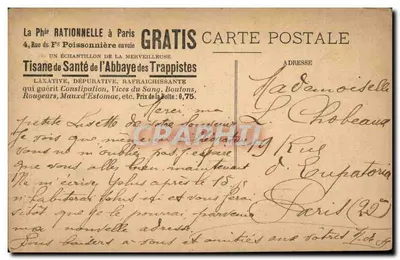 La Phie RATIONNELLE à Paris
4, Rue du Fg Poissonnière envoie
GRATIS
UN ÉCHANTILLON DE LA MERVEILLEUSE
Tisane de Santé de l'Abbaye des Trappistes
LAXATIVE, DÉPURATIVE, RAFRAICHISSANTE
qui guérit Constipation, Vices du Sang, Boutons,
Rougeurs, Maux d'Estomac, etc. Prix de la Boîte: 0,75.
CARTE POSTALE
ADRESSE
Merci, ma
petite Lisette de votre
Je vois que
vous ne m'oubliez pas j'espère
que vous allez bien maintenant
Ne m'écrivez plus après le 15, je
n'habiterai plus ici et vous ferai
sitôt que je le pourrai parvenir
ma nouvelle adresse.
Bons baisers à vous et amitiés aux vôtres
Mademoiselle
L. Chobeaux
19 Rue
d'Eupatoria
Paris (20e)